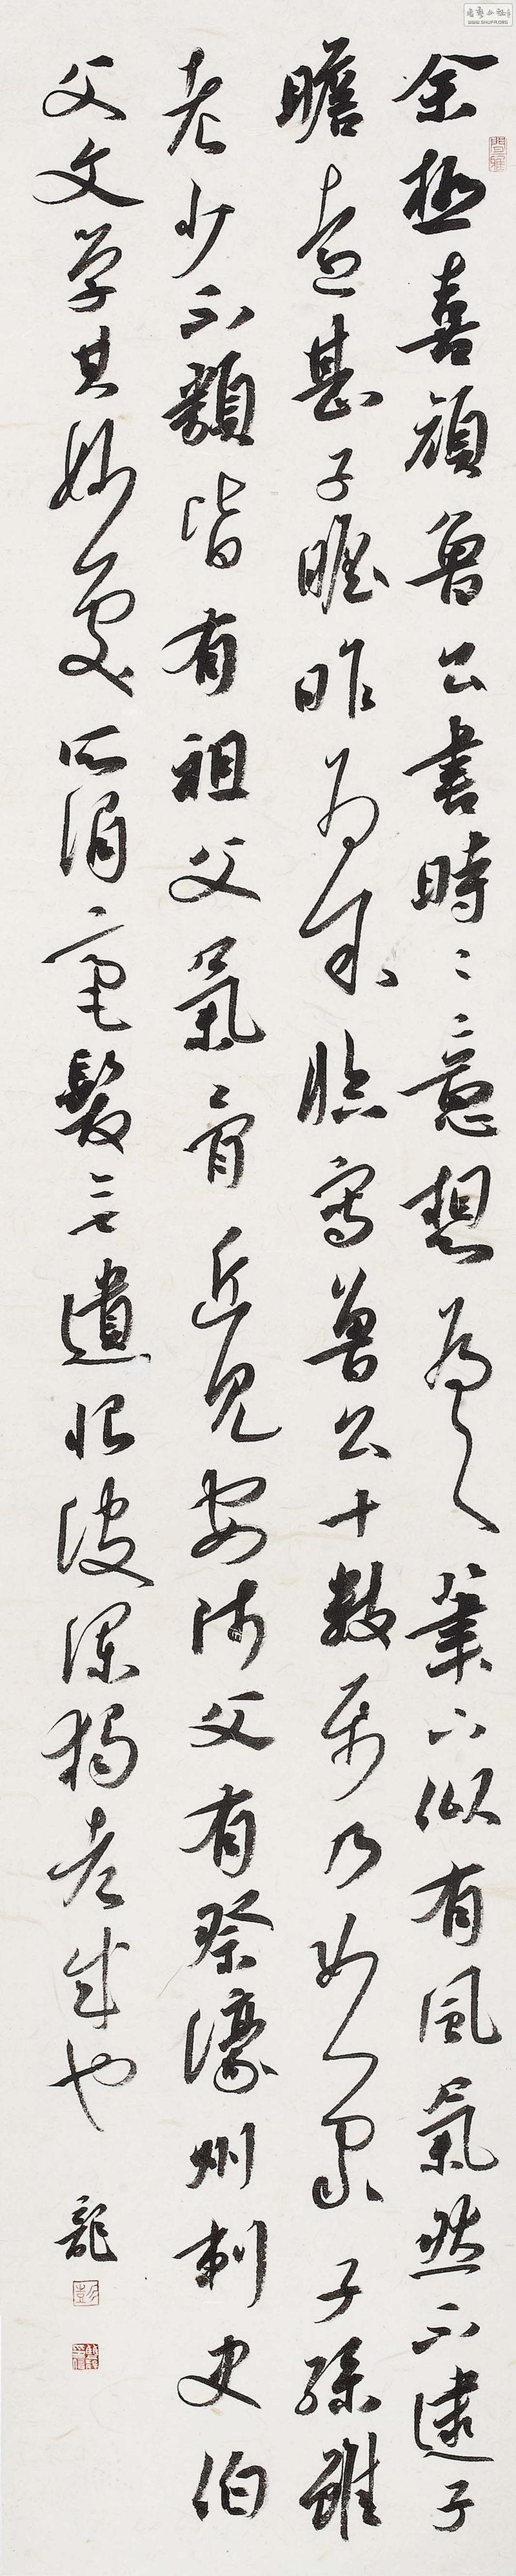 余極喜顏魯公書時時意想為之筆下似有風氣然不逮子
瞻遠甚子瞻昨為余臨寫魯公十數紙乃如人家子孫雖
老少不類皆有祖父氣骨近見安師父有祭濠州刺史伯
父文學其妙處所謂毫髮無遺恨波瀾獨老成也
龍
WWW.SHUFA.ORG